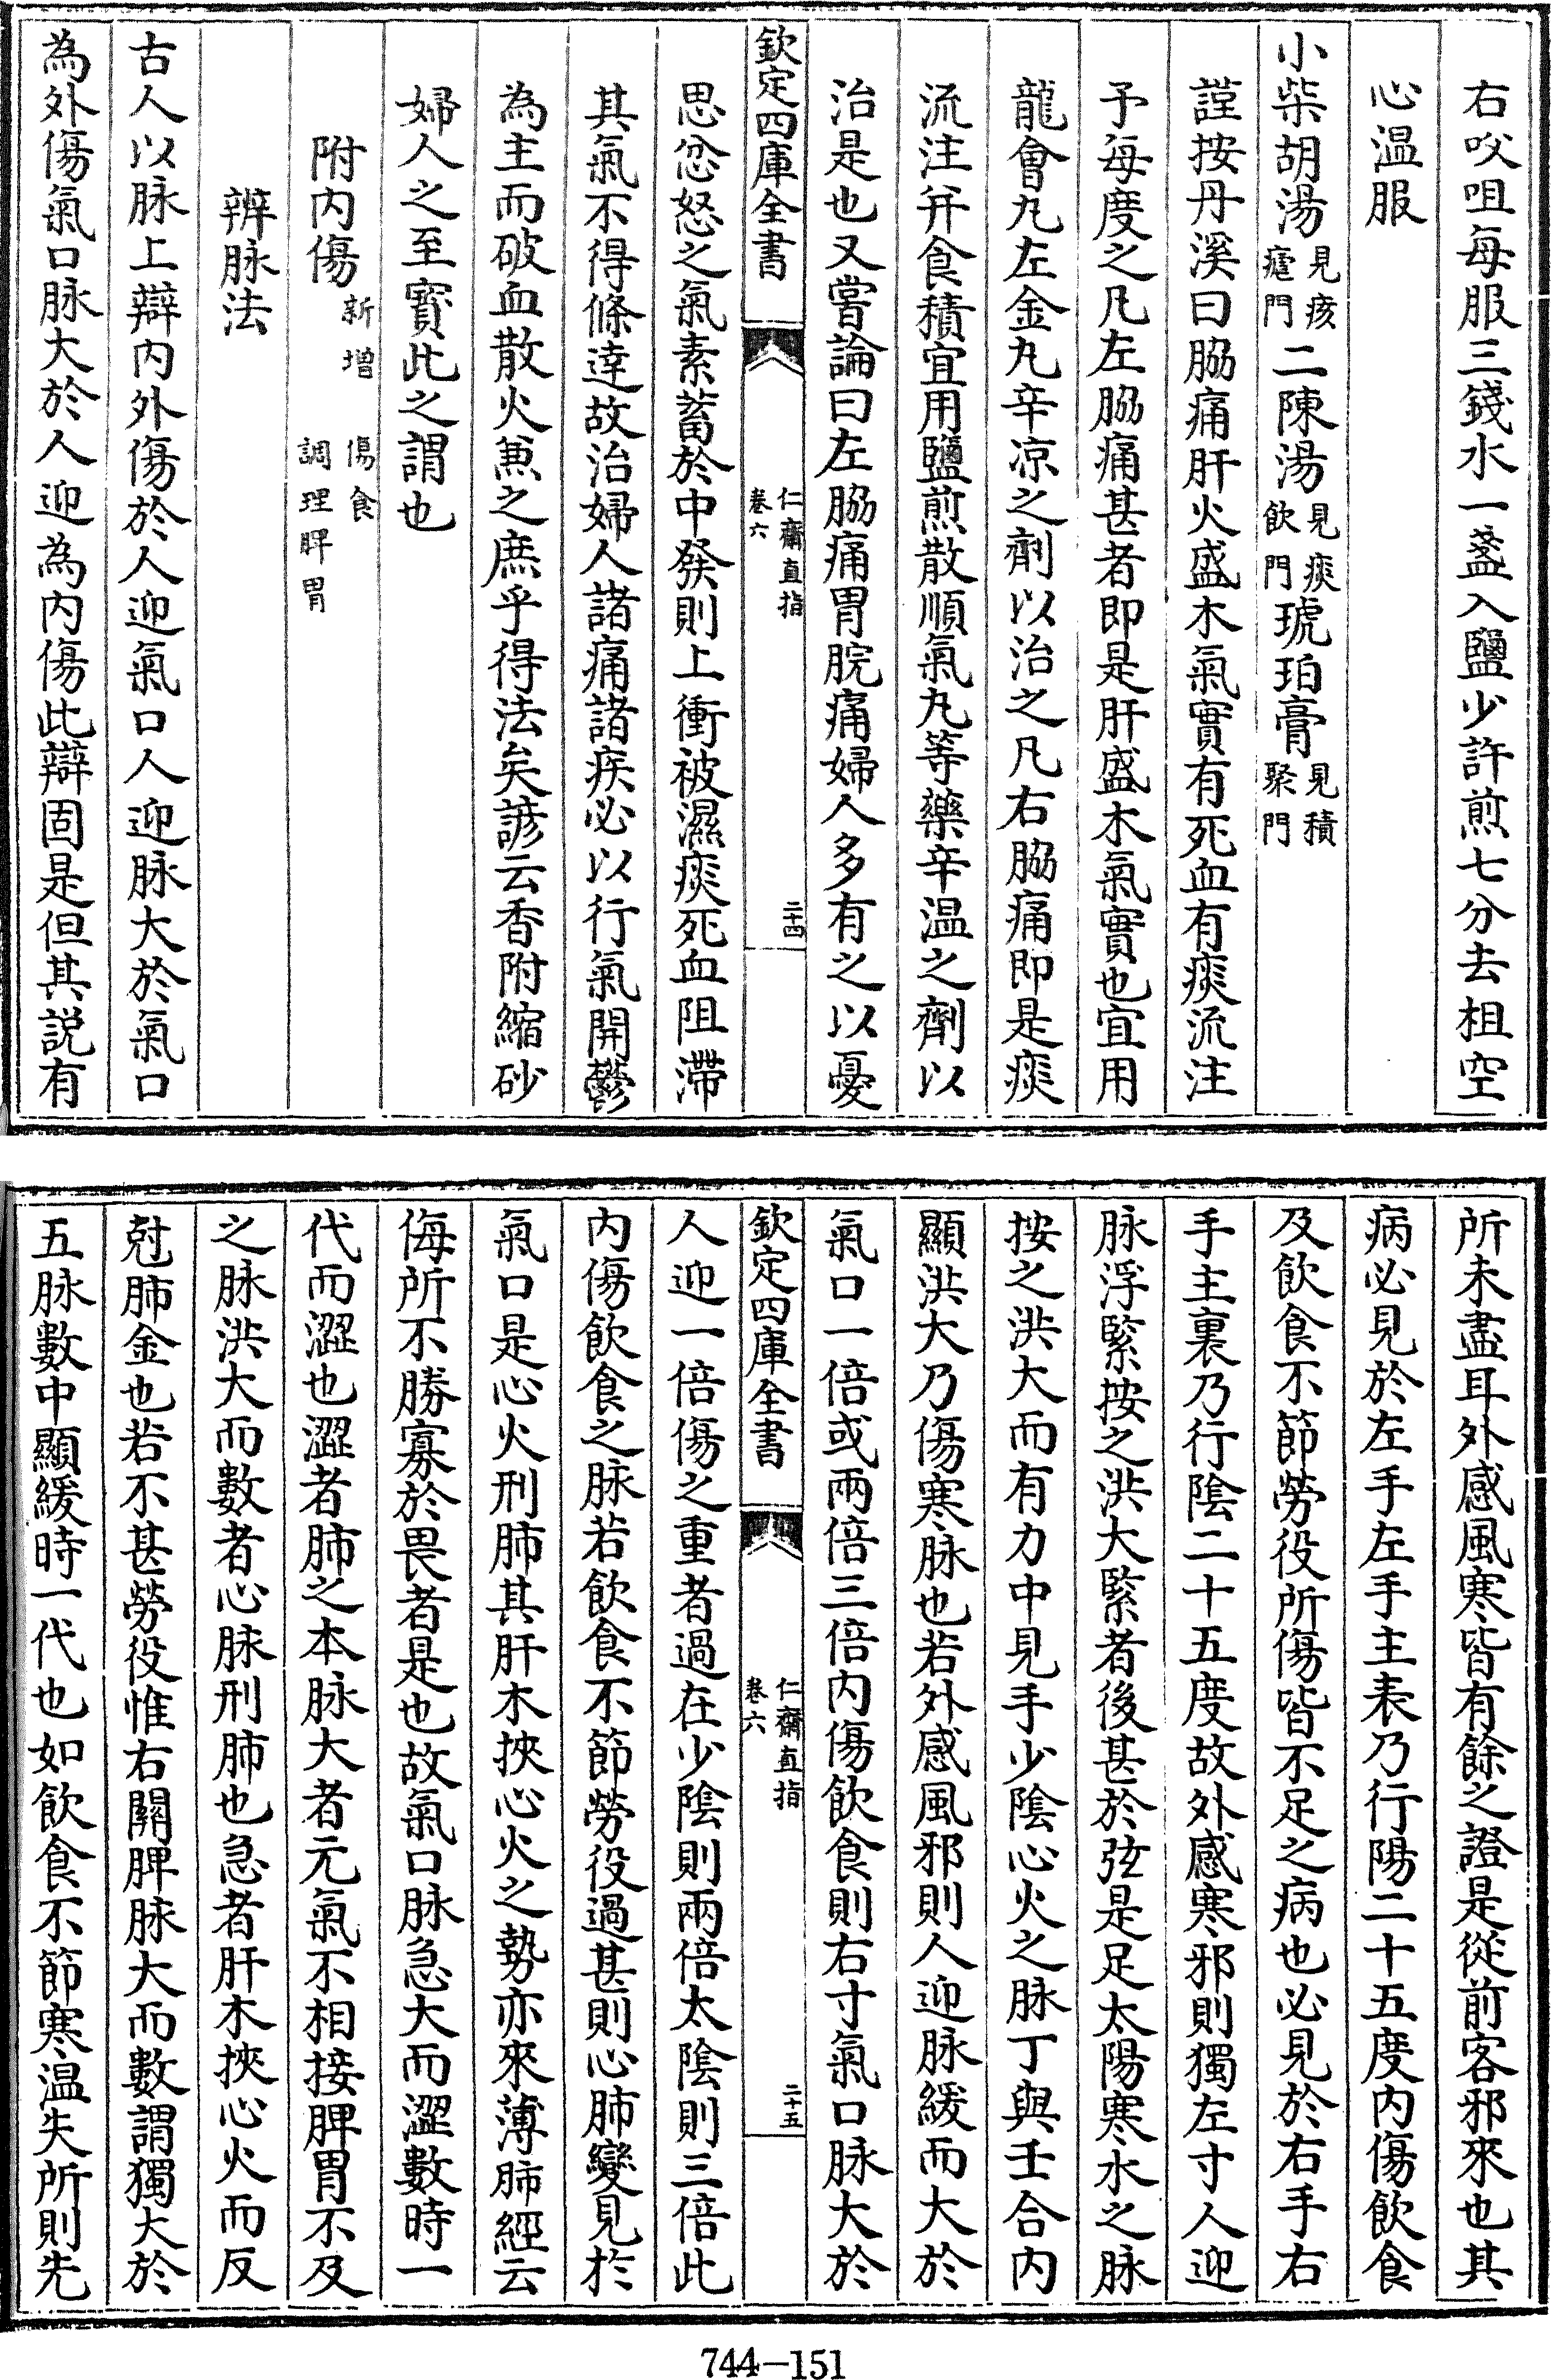 右㕮咀每服三錢水一盞入鹽少許煎七分去柤空
心温服
小柴胡湯見痎瘧門二陳湯見痰飲門琥珀膏見積聚門
謹按丹溪曰脇痛肝火盛木氣實有死血有痰流注
予每度之凡左脇痛甚者即是肝盛木氣實也宜用
龍會丸左金丸辛凉之劑以治之凡右脇痛即是痰
流注幷食積宜用鹽煎散順氣丸等藥辛温之劑以
治是也又嘗論曰左脇痛胃脘痛婦人多有之以憂
欽定四庫全書
仁齋直指
卷六
二十四
思忿怒之氣素蓄於中發則上衝被濕痰死血阻滯
其氣不得條達故治婦人諸痛諸疾必以行氣開鬱
為主而破血散火兼之庶乎得法矣諺云香附縮砂
婦人之至寳此之謂也
附内傷新增 傷食調理脾胃
辨脉法
古人以脉上辯内外傷於人迎氣口人迎脉大於氣口
為外傷氣口脉大於人迎為内傷此辯固是但其説有
所未盡耳外感風寒皆有餘之證是從前客邪來也其
病必見於左手左手主表乃行陽二十五度内傷飲食
及飲食不節勞役所傷皆不足之病也必見於右手右
手主裏乃行隂二十五度故外感寒邪則獨左寸人迎
脉浮緊按之洪大緊者後甚於弦是足太陽寒水之脉
按之洪大而有力中見手少隂心火之脉丁與壬合内
顯洪大乃傷寒脉也若外感風邪則人迎脉緩而大於
氣口一倍或兩倍三倍内傷飲食則右寸氣口脉大於
欽定四庫全書
仁齋直指
卷六
二十五
人迎一倍傷之重者過在少隂則兩倍太隂則三倍此
内傷飲食之脉若飲食不節勞役過甚則心肺變見於
氣口是心火刑肺其肝木挾心火之勢亦來薄肺經云
侮所不勝寡於畏者是也故氣口脉急大而澀數時一
代而澀也澀者肺之本脉大者元氣不相接脾胃不及
之脉洪大而數者心脉刑肺也急者肝木挾心火而反
尅肺金也若不甚勞役惟右關脾脉大而數謂獨大於
五脉數中顯緩時一代也如飲食不節寒温失所則先
744—151